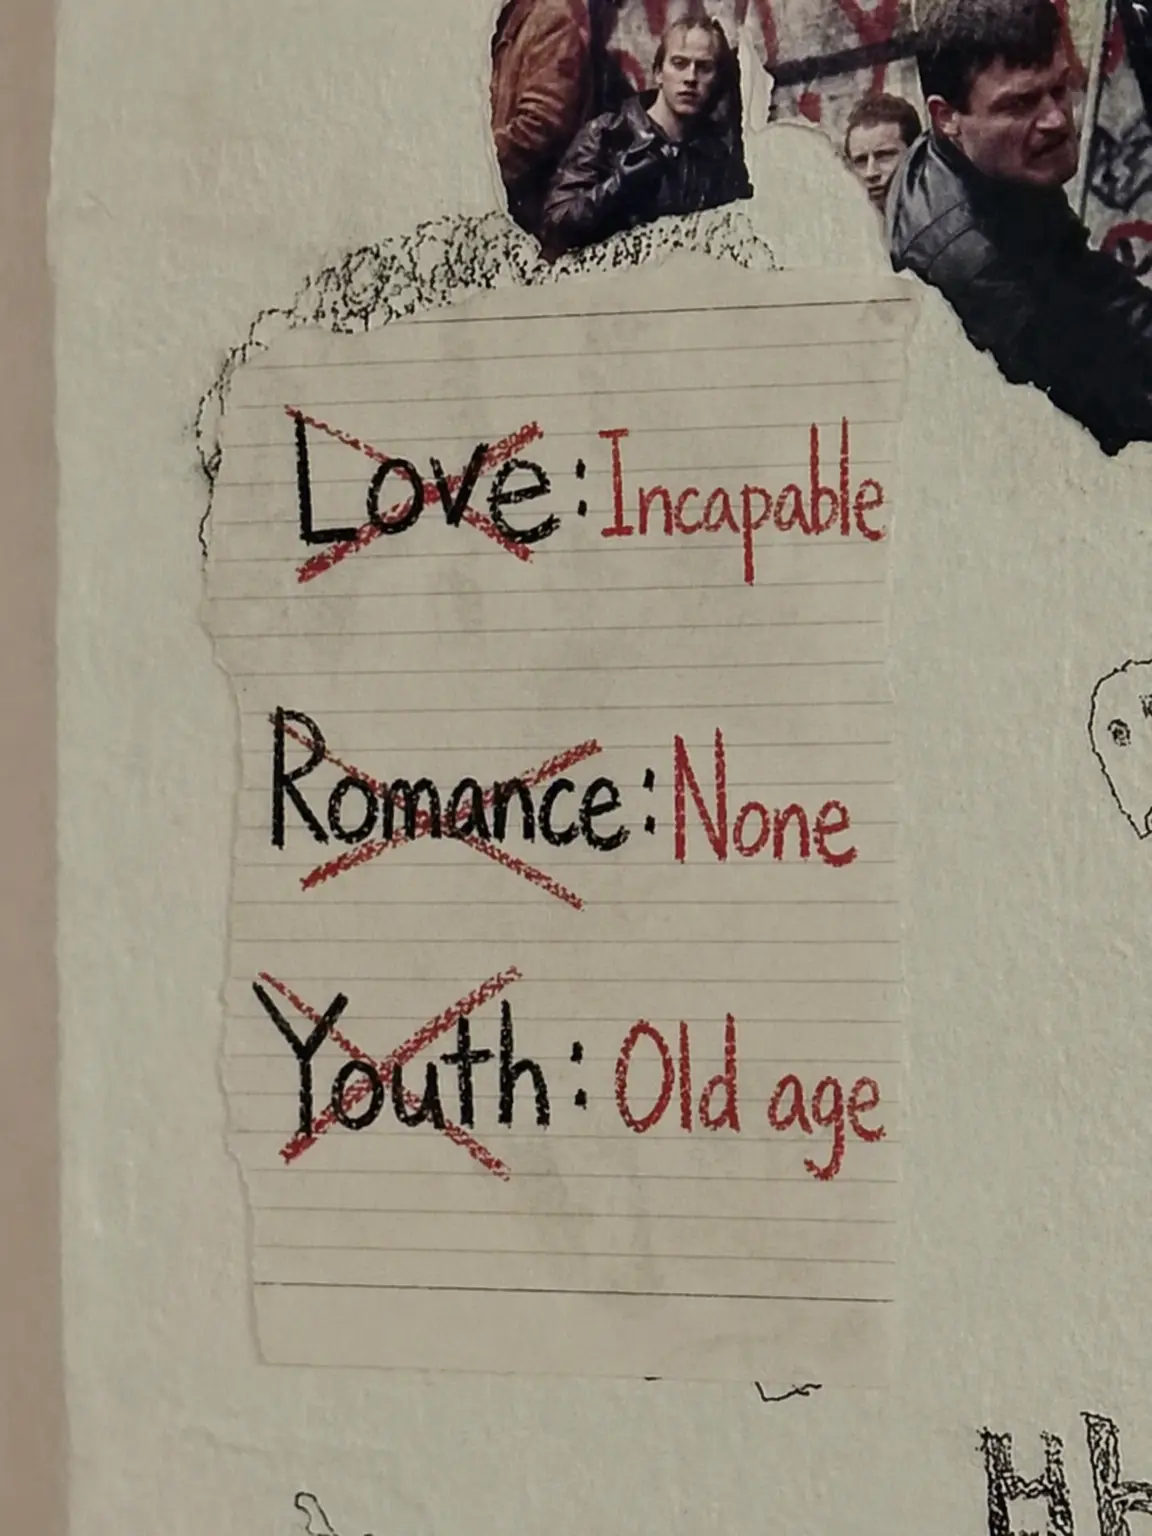 Love: Incapable
Romance: None
Youth: Old age